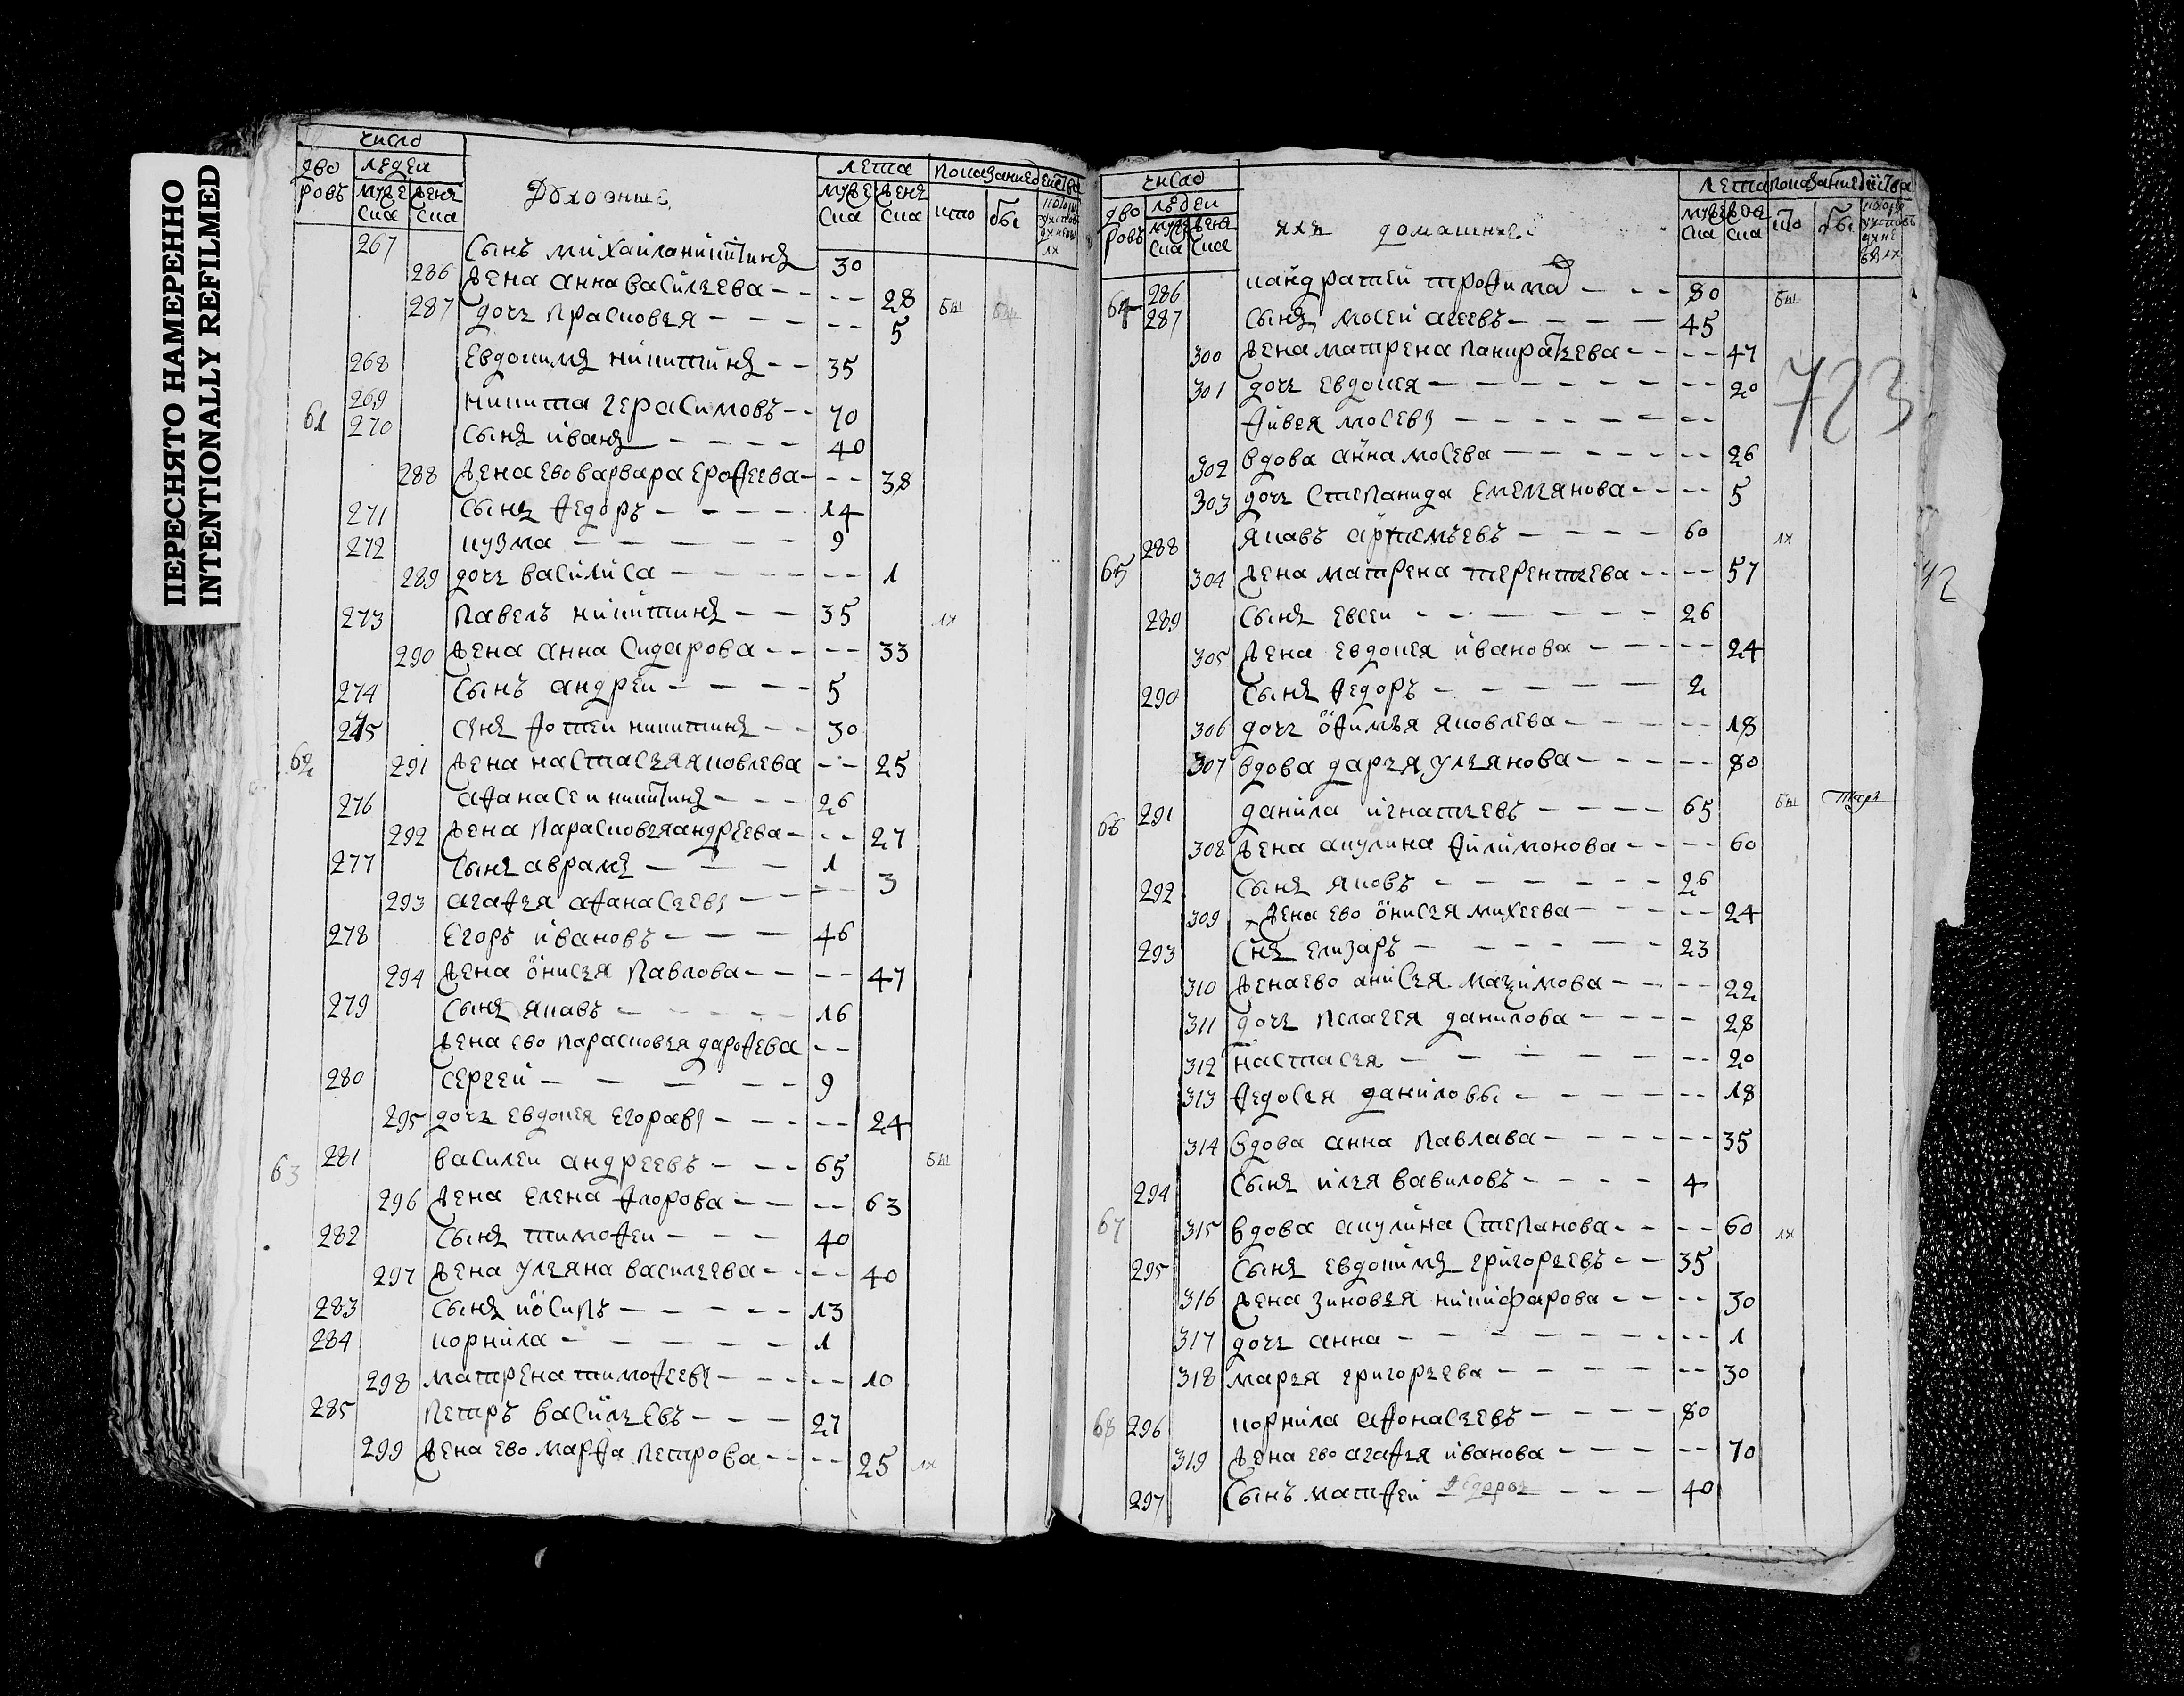 ПЕРЕСНЯТО НАМЕРЕННО
INTENTIONALLY REFILMED
число
дво ровъ людеи лета показание
муже ска женъ ска Духовные муже ска женъ ска кто бы
267 Сынъ михаила никитинъ 30
286 жена анна васильева - - - - 28 бы
287 дочь прасковья - - - - - - 5
268 Евдокимъ никитинъ - - 35
61 269 никита герасимовъ - - 70
270 Сынъ иванъ - - - - 40
288 жена ево варвара ерофеева - - - 38
271 Сынъ федоръ - - - - - 14
272 кузма - - - - - - 9
289 дочь василиса - - - - - - 1
273 Павелъ никитинъ - - 35
290 жена анна Сидарова - - - - 33
274 Сынъ андреи - - - - 5
275 Снъ фотеи никитинъ - - 30
62 291 жена настасья яковлева - - 25
276 афанасеи никитинъ - - - 26
292 жена парасковья андреева - - - 27
277 Сынъ аврамъ - - - 1
293 агафья афанасьевы - - - - 3
278 Егоръ ивановъ - - - 46
294 жена онисья павлова - - - - 47
279 Сынъ якавъ - - - - - 16
жена ево парасковья дарофева - -
280 Сергеи - - - - - 9
295 дочь евдокея егоравы - - - - - 24
63 281 василеи андреевъ - - - 65 бы
296 жена елена флорова - - - - - 63
282 Сынъ тимофеи - - - 40
297 жена ульяна васильева - - - - 40
283 Сынъ иосипъ - - - - - 13
284 корнила - - - - - 1
298 матрена тимофеевы - - - - - 10
285 Петръ васильевъ - - - 27
299 жена ево марфа петрова - - - - 25
число
дво ровъ людеи лета показание
муже ска женъ ска ихъ домашние муже ска ска кто бы
64 286 кандратеи трофима - - - 80 бы
287 Сынъ мосеи агеевъ - - - - 45
300 жена матрена панкратьева - - - - 47
301 дочь евдокея - - - - - - - - - 20
фивея мосевы - - - - - - - -
302 вдова анна мосева - - - - - - - 26
303 дочь Степанида емельянова - - - - 5
65 288 якавъ артемьевъ - - - - 60
304 жена матрена терентьева - - - - 57
289 Сынъ евсеи - - - - - - - 26
305 жена евдокея иванова - - - - - 24
290 Сынъ федоръ - - - - - - 2
306 дочь офимья яковлева - - - - - - 18
307 вдова дарья ульянова - - - - - - 80
66 291 данила игнатьевъ - - - - 65 бы
308 жена акулина филимонова - - - - 60
292 Сынъ яковъ - - - - - - 26
309 жена ево онисья михеева - - - - - 24
293 Снъ елизаръ - - - - - - 23
310 жена ево анисья мазимова - - - - 22
311 дочь пелагея данилова - - - - 28
312 настасья - - - - - - - 20
313 федосья даниловы - - - - - - 18
314 вдова анна павлава - - - - - - 35
294 Сынъ илья вавиловъ - - - - 4
67 315 вдова акулина Степанова - - - - 60
295 Сынъ евдокимъ григорьевъ - - 35
316 жена зиновья никифарова - - - - 30
317 дочь анна - - - - - - - - - 1
318 марья григорьева - - - - - - 30
68 296 корнила афонасьевъ - - - - 80
319 жена ево агафья иванова - - - - - 70
297 Сынъ матфеи - - - 40
723